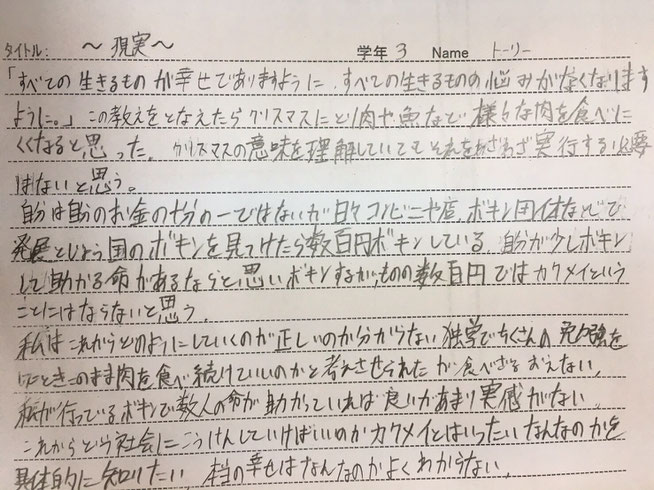 タイトル: ～現実～ 学年 3 Name トーリー
「すべての生きるものが幸せでありますように、すべての生きるものの悩みがなくなります
ように。」この教えをとなえたらクリスマスにとり肉や魚など様々な肉を食べに
くくなると思った。クリスマスの意味を理解していてもそれをわざわざ実行する必要
はないと思う。
自分は自分のお金の十分の一ではないが日々コンビニや店、ボキン団体などで
発展とじょう国のボキンを見つけたら数百円ボキンしている。自分が少しボキン
して助かる命があるならと思いボキンするが、ものの数百円ではカクメイという
ことにはならないと思う。
私はこれからどのようにしていくのが正しいのか分からない 独学でちくさんの勉強を
したときこのまま肉を食べ続けていいのかと考えさせられたが食べざるおえない。
私が行っているボキンで数人の命が助かっていれば良いがあまり実感がない。
これからどう社会にこうけんしていけばいいのかカクメイとはいったいなんなのかを
具体的に知りたい。本当の幸せはなんなのかよくわからない。